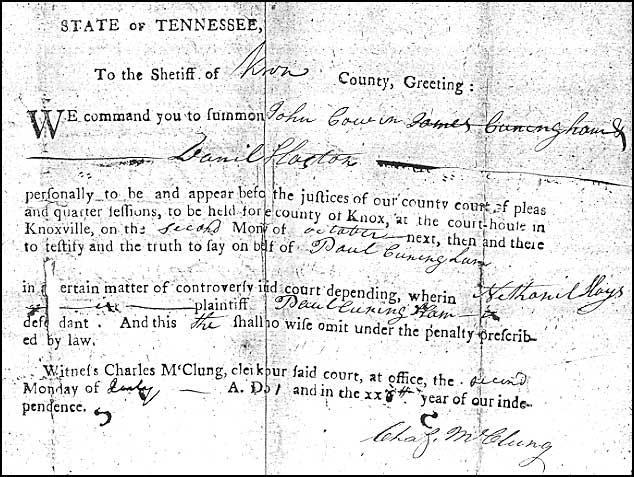 STATE OF TENNESSEE,
To the Sheriff of Knox County, Greeting:
WE command you to summon John Cowin James Cuningham &
Daniel
personally to be and appear befo the justices of our county court of pleas
and quarter sessions, to be held for e county of Knox, at the court-house in
Knoxville, on the second Mon of october next, then and there
to testify and the truth to say on b lf of Paul Cuningham
in ertain matter of controversy in d court depending, wherein Nethanil Hays
plaintiff Paul Cuningham
defe dant. And this the shall no wise omit under the penalty prescrib-
ed by law.
Witness Charles McClung, clerk our said court, at office, the second
Monday of July A. D. 1 and in the xx th year of our inde-
pendence.
Cha S. McClung